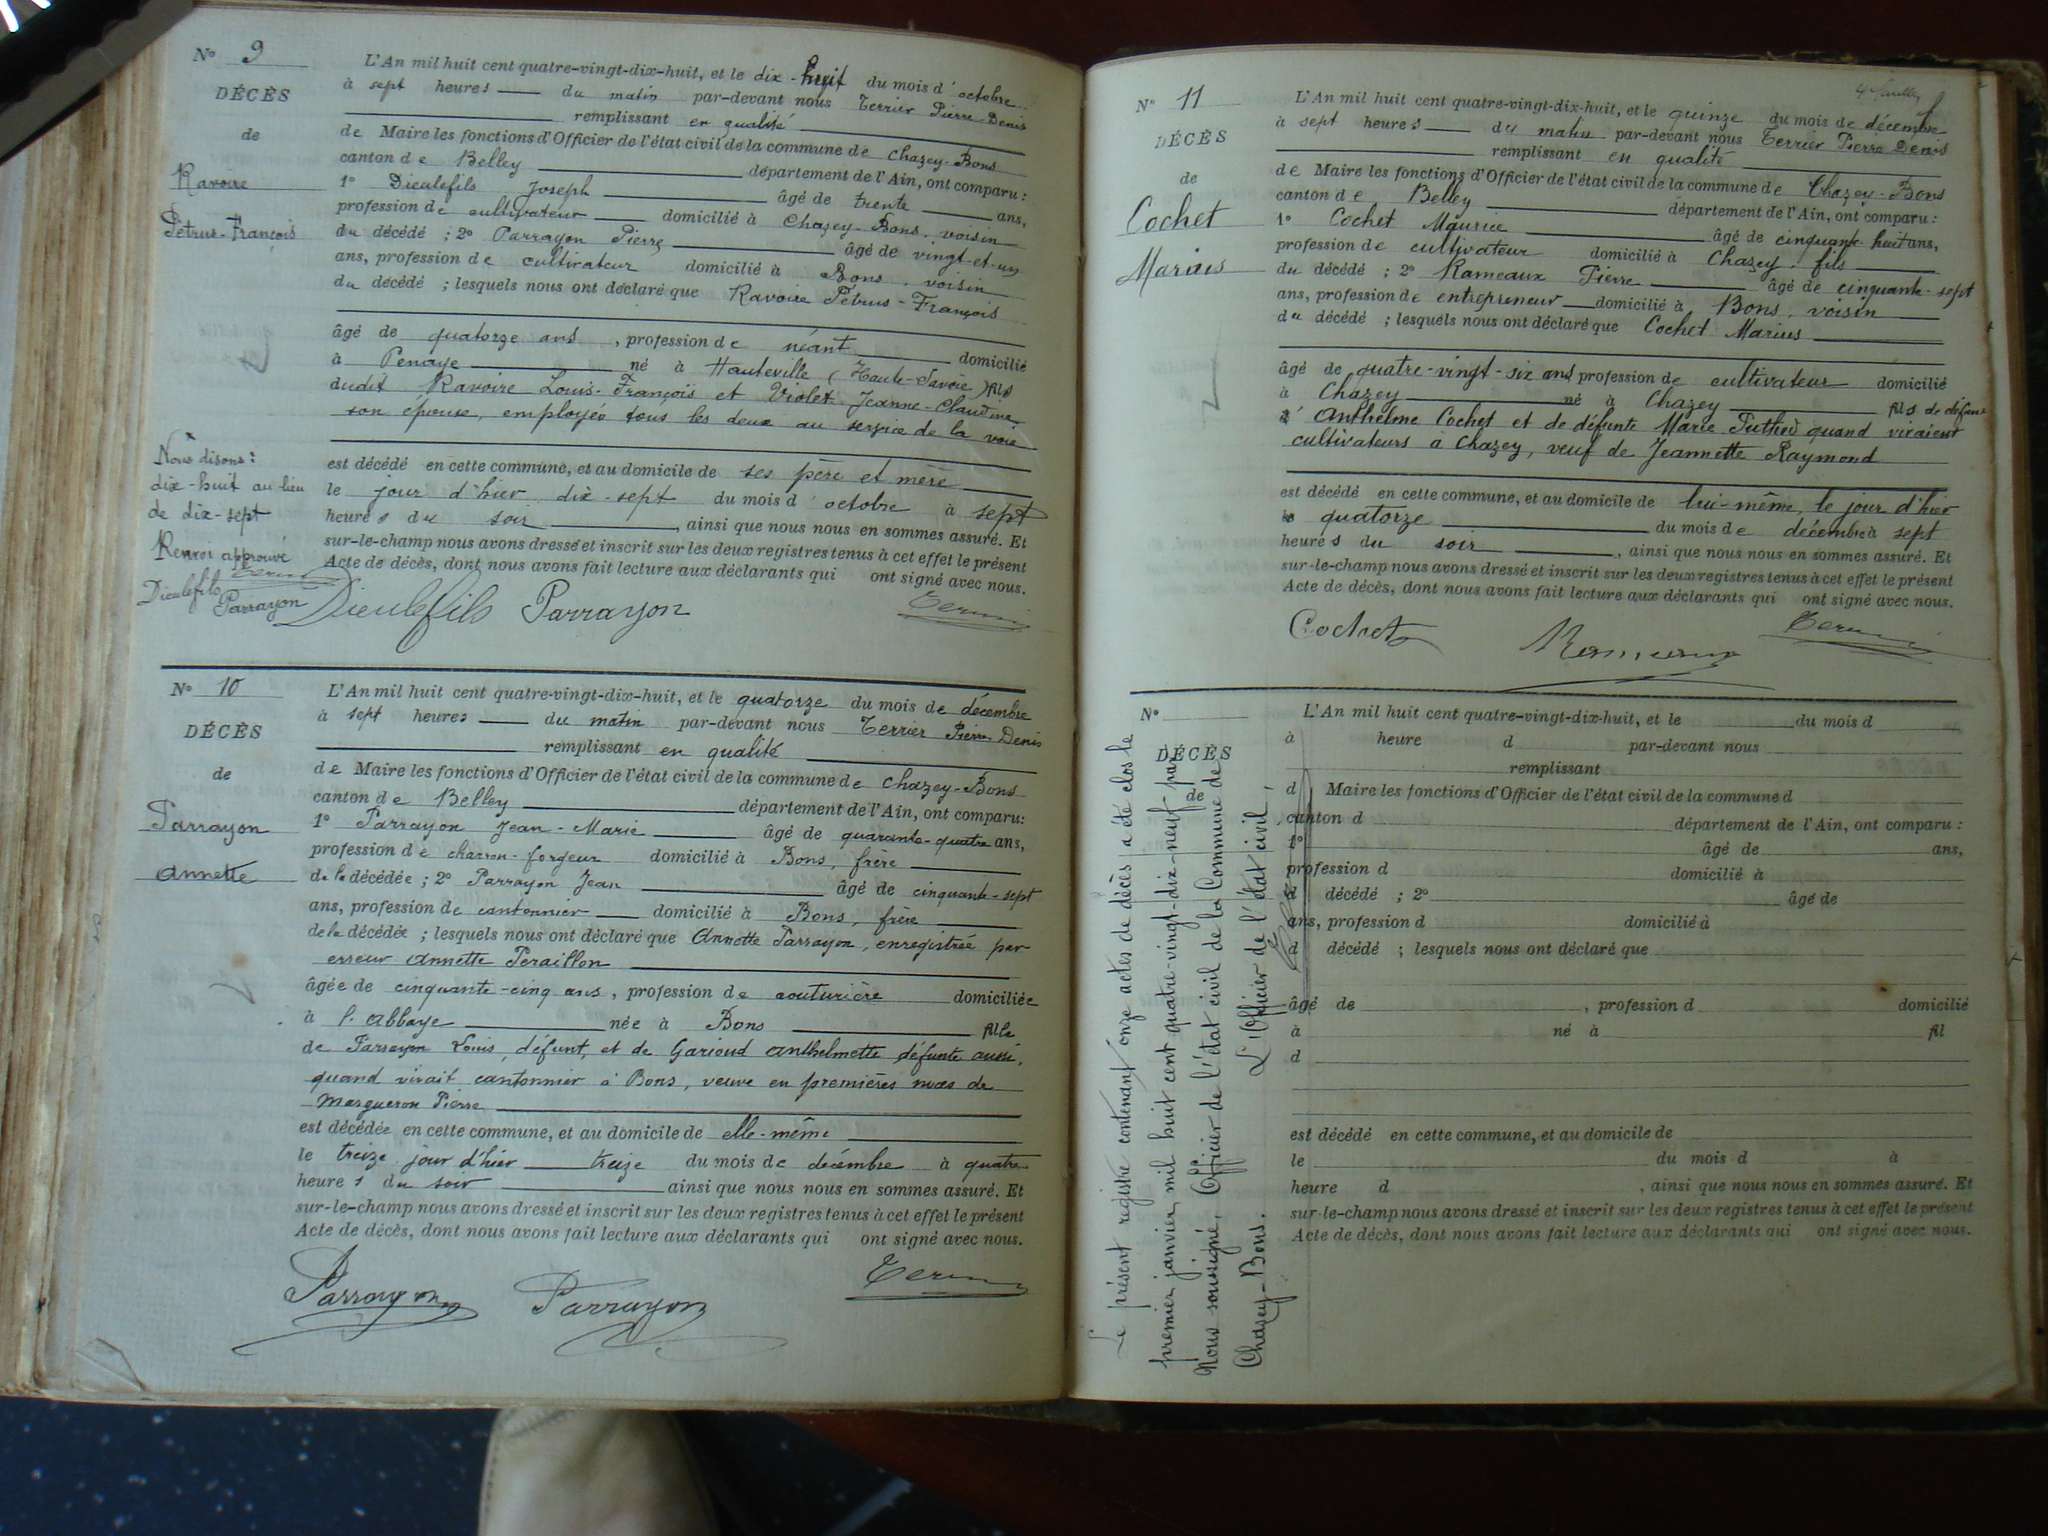 N° 9
DÉCÈS
de
Ravoire
Pétrus-François
L'An mil huit cent quatre-vingt-dix-huit, et le dix-huit du mois d'octobre
à sept heures du matin par-devant nous Terrier Pierre-Denis
remplissant en qualité
de Maire les fonctions d'Officier de l'état civil de la commune de Chazey-Bons
canton de Belley département de l'Ain, ont comparu :
1° Dieulefils Joseph âgé de trente ans,
profession de cultivateur domicilié à Chazey-Bons, voisin
du décédé ; 2° Parrayon Pierre âgé de vingt-et-un
ans, profession de cultivateur domicilié à Bons, voisin
du décédé ; lesquels nous ont déclaré que Ravoire Pétrus-François
âgé de quatorze ans, profession de néant domicilié
à Penaye né à Hauteville (Haute-Savoie) fils
dudit Ravoire Louis-François et Violet Jeanne-Claudine
son épouse, employés tous les deux au service de la voie
est décédé en cette commune, et au domicile de ses père et mère
le jour d'hier dix-sept du mois d'octobre à sept
heures du soir, ainsi que nous nous en sommes assuré. Et
sur-le-champ nous avons dressé et inscrit sur les deux registres tenus à cet effet le présent
Acte de décès, dont nous avons fait lecture aux déclarants qui ont signé avec nous.
Nous disons :
dix-huit au lieu
de dix-sept
Renvoi approuvé
Dieulefils
Parrayon
Dieulefils Parrayon
N° 10
DÉCÈS
de
Parrayon
Annette
L'An mil huit cent quatre-vingt-dix-huit, et le quatorze du mois de décembre
à sept heures du matin par-devant nous Terrier Pierre Denis
remplissant en qualité
de Maire les fonctions d'Officier de l'état civil de la commune de Chazey-Bons
canton de Belley département de l'Ain, ont comparu:
1° Parrayon Jean-Marie âgé de quarante-quatre ans,
profession de charron-forgeur domicilié à Bons, frère
de la décédée ; 2° Parrayon Jean âgé de cinquante-sept
ans, profession de cantonnier domicilié à Bons, frère
de la décédée ; lesquels nous ont déclaré que Annette Parrayon, enregistrée par
erreur Annette Peraillon
âgée de cinquante-cinq ans, profession de couturière domiciliée
à l'abbaye née à Bons fille
de Parrayon Louis, défunt, et de Garioud Anthelmette défunte aussi,
quand vivait cantonnier à Bons, veuve en premières noces de
Margueron Pierre
est décédée en cette commune, et au domicile de elle-même
le treize jour d'hier treize du mois de décembre à quatre
heures du soir ainsi que nous nous en sommes assuré. Et
sur-le-champ nous avons dressé et inscrit sur les deux registres tenus à cet effet le présent
Acte de décès, dont nous avons fait lecture aux déclarants qui ont signé avec nous.
Parrayon Parrayon
N° 11
DÉCÈS
de
Cochet
Marius
L'An mil huit cent quatre-vingt-dix-huit, et le quinze du mois de décembre
à sept heures du matin par-devant nous Terrier Pierre Denis
remplissant en qualité
de Maire les fonctions d'Officier de l'état civil de la commune de Chazey-Bons
canton de Belley département de l'Ain, ont comparu :
1° Cochet Maurice âgé de cinquante-huit ans,
profession de cultivateur domicilié à Chazey, fils
du décédé ; 2° Rameaux Pierre âgé de cinquante-sept
ans, profession de entrepreneur domicilié à Bons, voisin
du décédé ; lesquels nous ont déclaré que Cochet Marius
âgé de quatre-vingt-six ans profession de cultivateur domicilié
à Chazey né à Chazey fils de défunt
Anthelme Cochet et de défunte Marie Puthod quand vivaient
cultivateurs à Chazey, veuf de Jeannette Raymond
est décédé en cette commune, et au domicile de lui-même, le jour d'hier
le quatorze du mois de décembre à sept
heures du soir, ainsi que nous nous en sommes assuré. Et
sur-le-champ nous avons dressé et inscrit sur les deux registres tenus à cet effet le présent
Acte de décès, dont nous avons fait lecture aux déclarants qui ont signé avec nous.
Cochet
N°
DÉCÈS
de
L'An mil huit cent quatre-vingt-dix-huit, et le du mois d
à heure d par-devant nous
remplissant
d Maire les fonctions d'Officier de l'état civil de la commune d
canton d département de l'Ain, ont comparu :
1° âgé de ans,
profession d domicilié à
d décédé ; 2° âgé de
ans, profession d domicilié à
d décédé ; lesquels nous ont déclaré que
âgé de , profession d domicilié
à né à fil
d
est décédé en cette commune, et au domicile de
le du mois d à
heure d , ainsi que nous nous en sommes assuré. Et
sur-le-champ nous avons dressé et inscrit sur les deux registres tenus à cet effet le présent
Acte de décès, dont nous avons fait lecture aux déclarants qui ont signé avec nous.
Le présent registre contenant onze actes de décès a été clos le
premier janvier mil huit cent quatre-vingt-dix-neuf par
Nous soussigné, Officier de l'état civil de la Commune de
Chazey-Bons. L'Officier de l'état civil,